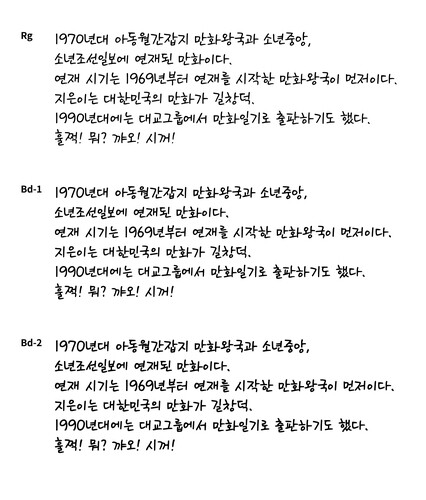 Rg
1970년대 아동월간잡지 만화왕국과 소년중앙,
소년조선일보에 연재된 만화이다.
연재 시기는 1969년부터 연재를 시작한 만화왕국이 먼저이다.
지은이는 대한민국의 만화가 길창덕.
1990년대에는 대교그룹에서 만화일기로 출판하기도 했다.
훌쩍! 뭐? 꺄오! 시꺼!
Bd-1
1970년대 아동월간잡지 만화왕국과 소년중앙,
소년조선일보에 연재된 만화이다.
연재 시기는 1969년부터 연재를 시작한 만화왕국이 먼저이다.
지은이는 대한민국의 만화가 길창덕.
1990년대에는 대교그룹에서 만화일기로 출판하기도 했다.
훌쩍! 뭐? 꺄오! 시꺼!
Bd-2
1970년대 아동월간잡지 만화왕국과 소년중앙,
소년조선일보에 연재된 만화이다.
연재 시기는 1969년부터 연재를 시작한 만화왕국이 먼저이다.
지은이는 대한민국의 만화가 길창덕.
1990년대에는 대교그룹에서 만화일기로 출판하기도 했다.
훌쩍! 뭐? 꺄오! 시꺼!